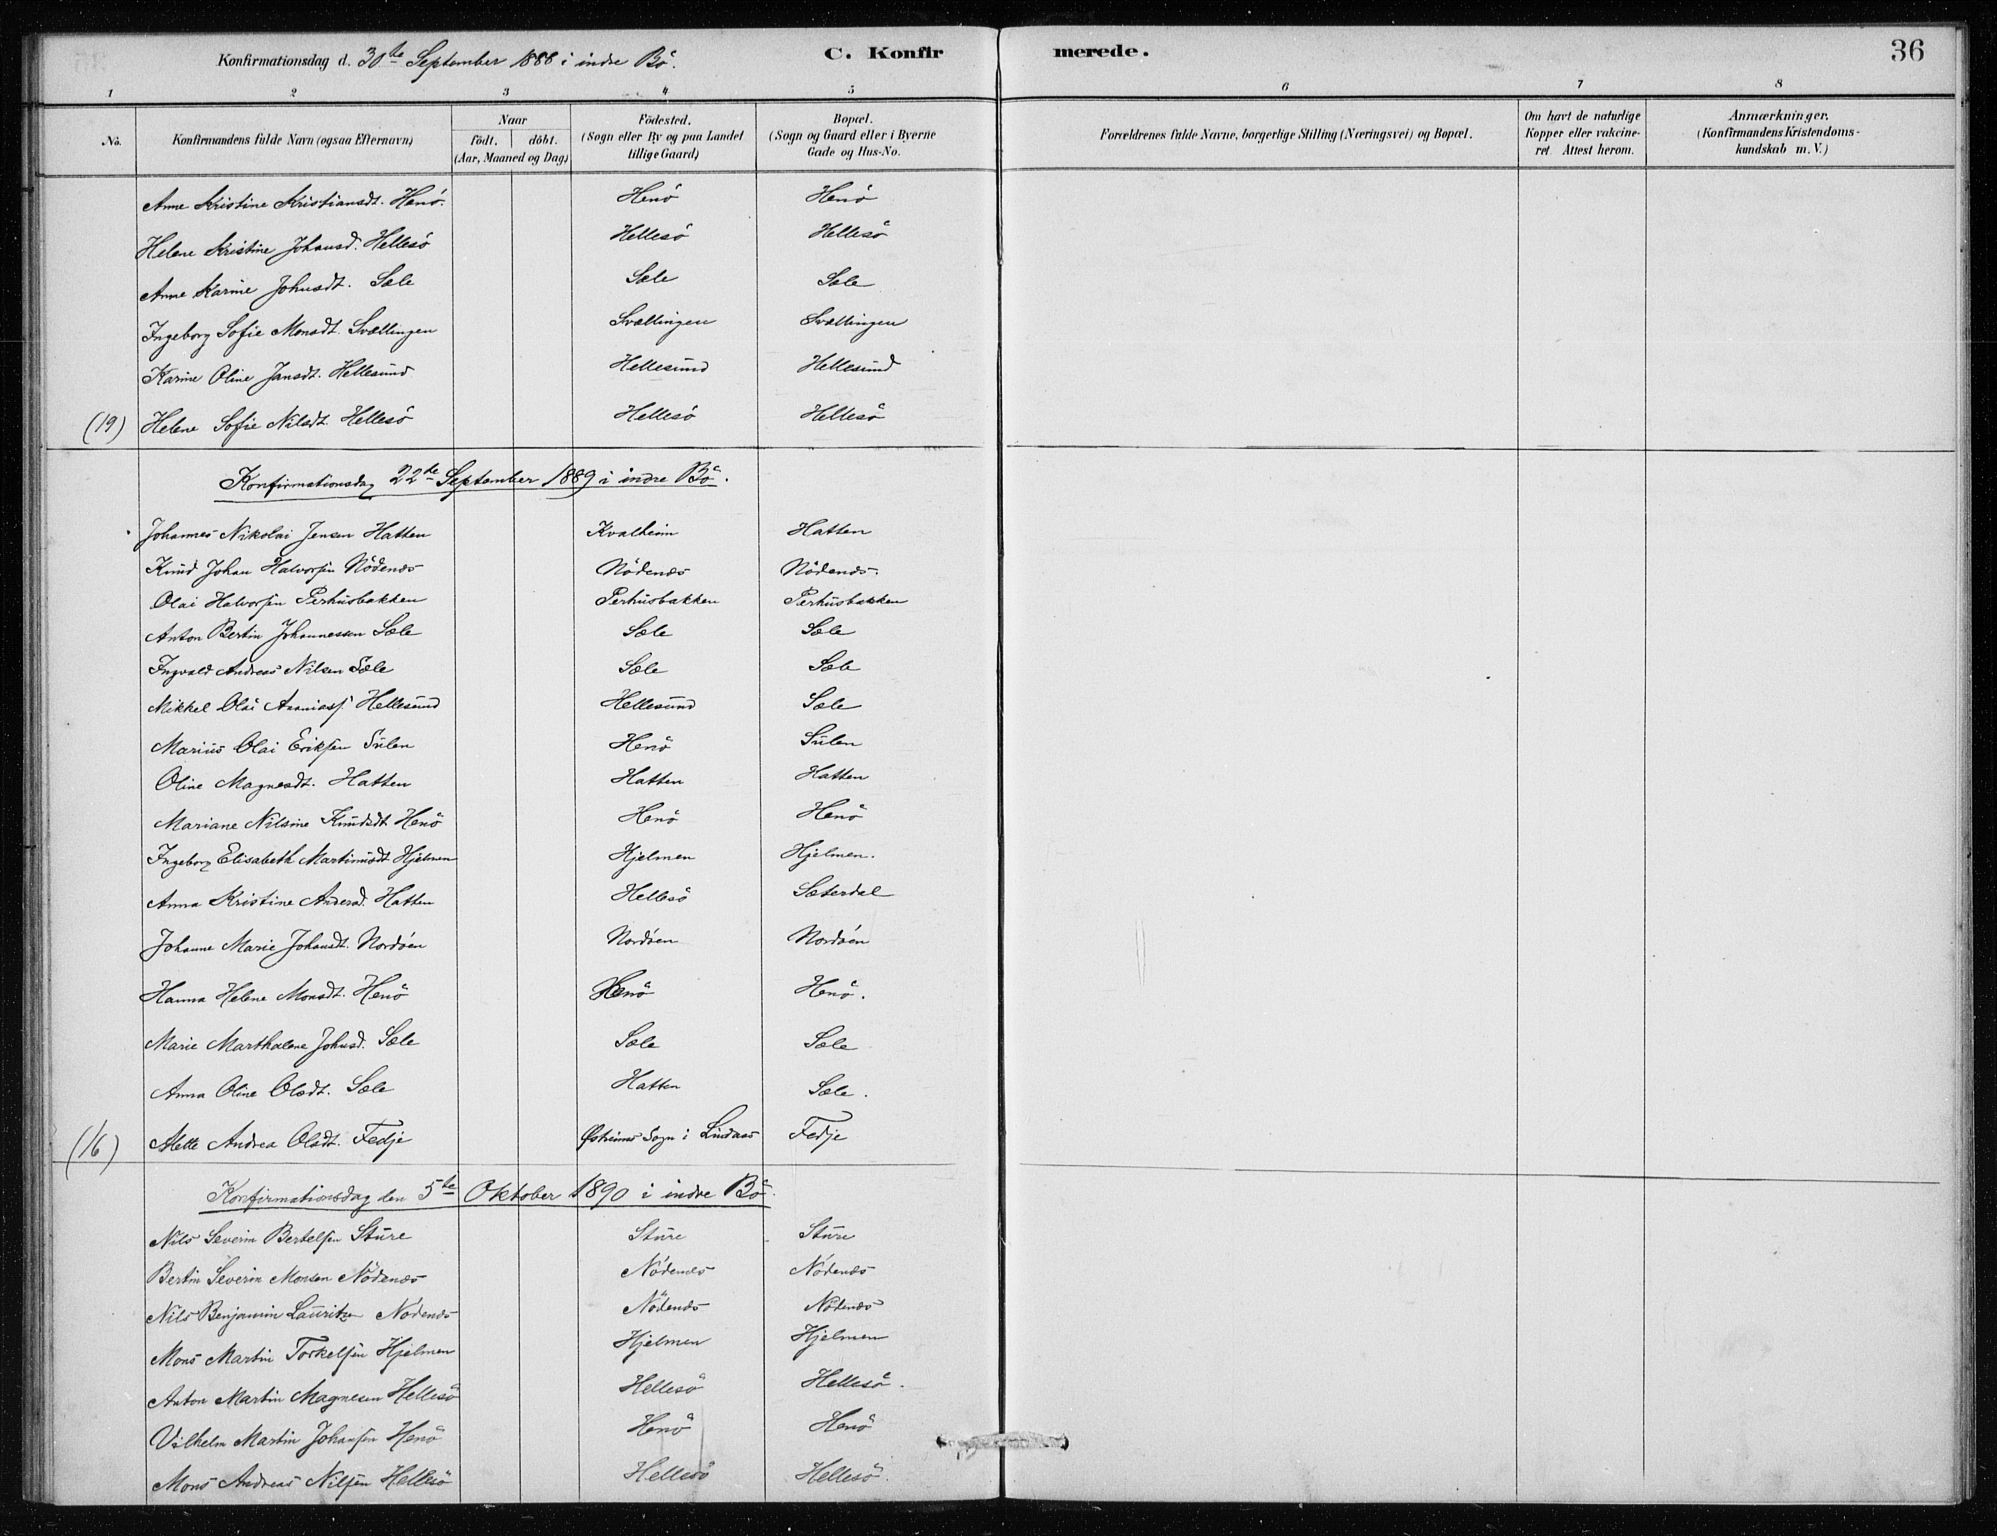 Konfirmationsdag d. 30te September 1888 i indre Bö.
C. Konfirmerede.
36
1 2 3 4 5 6 7 8
No.
Konfirmandens fulde Navn (ogsaa Efternavn)
Naar
födt. döbt.
(Aar, Maaned og Dag)
Födested.
(Sogn eller By og paa Landet
tillige Gaard)
Bopæl.
(Sogn og Gaard eller i Byerne
Gade og Hus-No.
Forældrenes fulde Navne, borgerlige Stilling (Næringsvei) og Bopæl.
Om havt de naturlige
Kopper eller vakcine-
ret. Attest herom.
Anmærkninger.
(Konfirmandens Kristendoms-
kundskab m. V.)
Anne Kristine Kristiansdt. Henö. Henö Henö
Helene Kristine Johansd. Hellesö Hellesö Hellesö
Anne Karine Johnsdt. Sæle Sæle Sæle
Ingeborg Sofie Monsdt. Svællingen Svællingen Svællingen
Karine Oline Jansdt. Hellesund Hellesund Hellesund
(19) Helene Sofie Nilsdt Hellesö Hellesö Hellesö
Konfirmationsdag 22de September 1889 i indre Bö.
Johannes Nikolai Jensen Hatten Kvalheim Hatten
Knud Johan Halvorsen Nödenæs Nödenæs Nödenæs.
Olai Halvorsen Perhusbakken Perhusbakken Perhusbakken
Anton Bertin Johannessen Sæle Sæle Sæle
Ingvald Andreas Nilsen Sæle Sæle Sæle
Mikkel Olai Ananiass. Hellesund Hellesund Sæle
Marius Olai Eriksen Sulen Henö Sulen
Oline Magnesdt. Hatten Hatten Hatten
Mariane Nilsine Knudsdt Henö Henö Henö
Ingeborg Elisabeth Martinusdt Hjelmen Hjelmen Hjelmen.
Anna Kristine Andersd. Hatten Hellesö Sæterdal
Johanne Marie Johansdt. Nordöen Nordöen Nordöen
Hanna Helene Monsdt. Henö Henö Henö.
Marie Marthalene Johnsd. Sæle Sæle Sæle
Anna Oline Olsdt. Sæle Hatten Sæle.
(16) Mette Andrea Olsdt. Fedje Østreims Sogn i Lindaas Fedje
Konfirmationsdag den 5te Oktober 1890 i indre Bö.
Nils Severin Bertelsen Sture Sture Sture
Bertin Severin Monsen Nödenæs Nödenæs Nödenæs
Nils Benjamin Lauritzen Nödenæs Nödenæs Nödenæs
Mons Martin Torkelsen Hjelmen Hjelmen Hjelmen
Anton Martin Magnesen Hellesö Hellesö Hellesö.
Vilhelm Martin Johansen Henö Henö Henö
Mons Andreas Nilsen Hellesö Hellesö Hellesö.